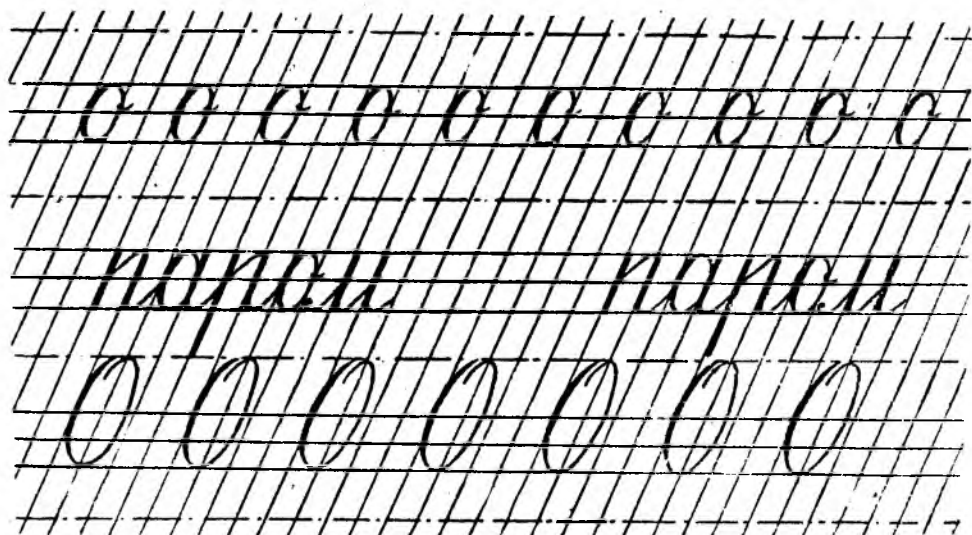 о о о о о о о о о о
паром паром
О О О О О О О